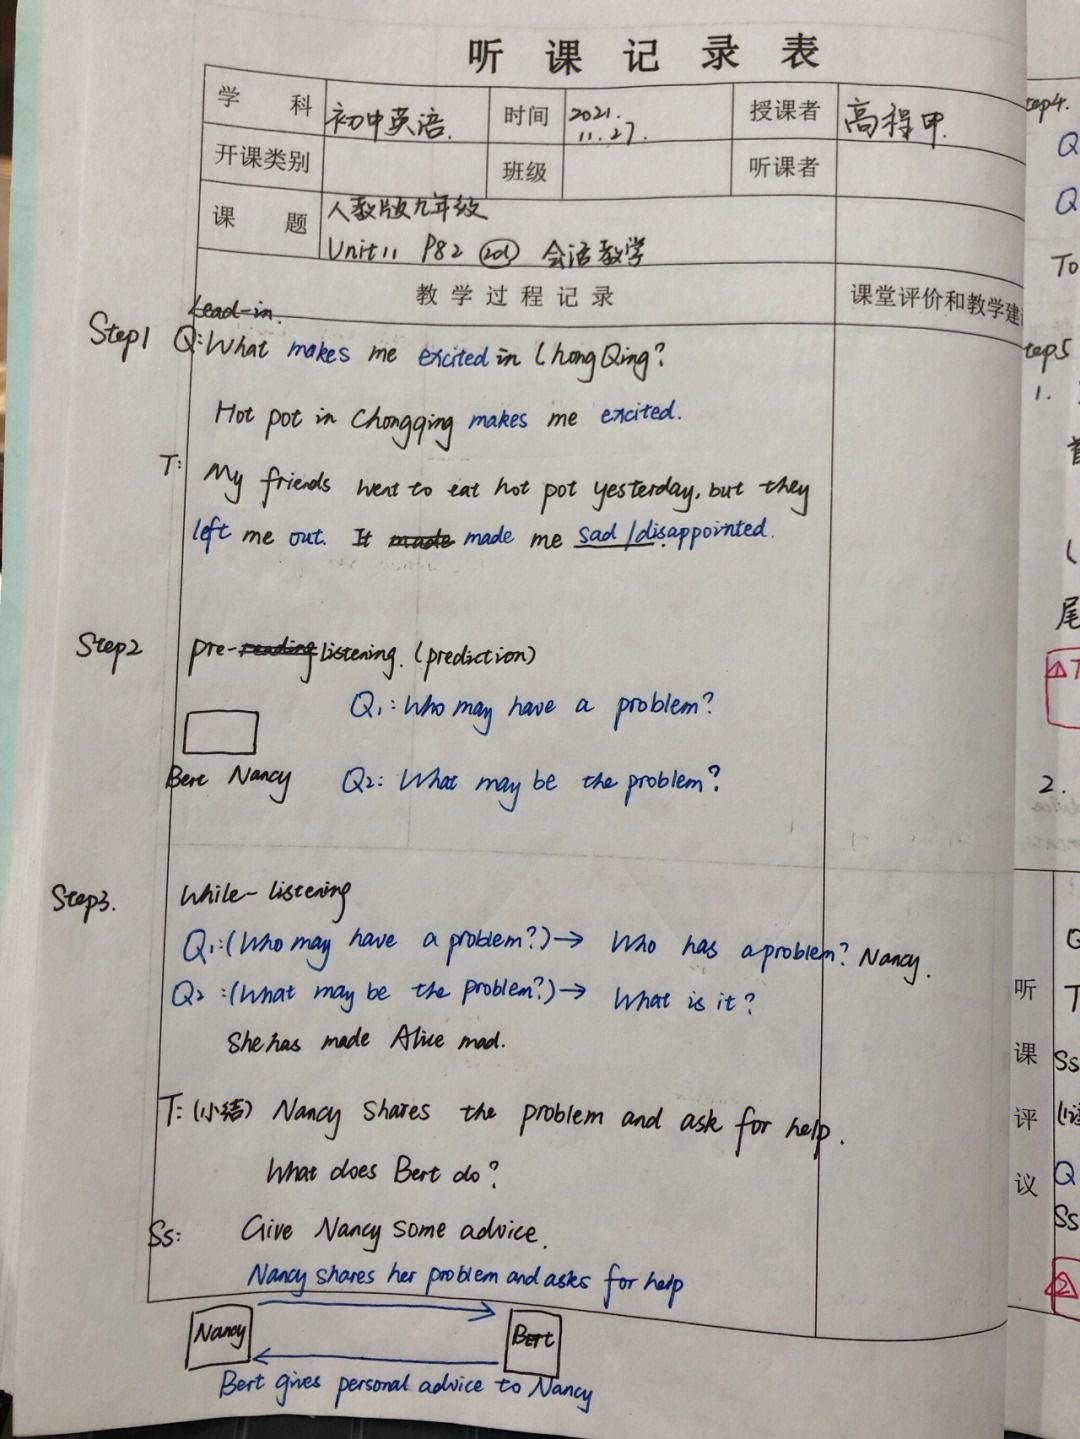 听 课 记 录 表
学 科 初中英语. 时间 2021. 11.27. 授课者 高程甲.
开课类别 班级 听课者
课 题 人教版九年级
Unit11 P82 2d 会话教学
教 学 过 程 记 录 课堂评价和教学建
Lead-in.
Step1 Q: What makes me excited in ChongQing?
Hot pot in Chongqing makes me excited.
T: My friends went to eat hot pot yesterday, but they
left me out. It made made me sad / disappointed.
Step2 Pre-reading listening. (prediction)
Q1: Who may have a problem?
Bert Nancy Q2: What may be the problem?
Step3. While-listening
Q1: (Who may have a problem?) → Who has a problem? Nancy.
Q2: (What may be the problem?) → What is it?
She has made Alice mad.
T: (小结) Nancy shares the problem and ask for help.
What does Bert do?
Ss: Give Nancy some advice.
Nancy shares her problem and asks for help
Nancy Bert
Bert gives personal advice to Nancy
tep4.
Q
Q
To
tep5
1.
尾
T
2.
听
课
评
议
T
Ss
Q
Ss